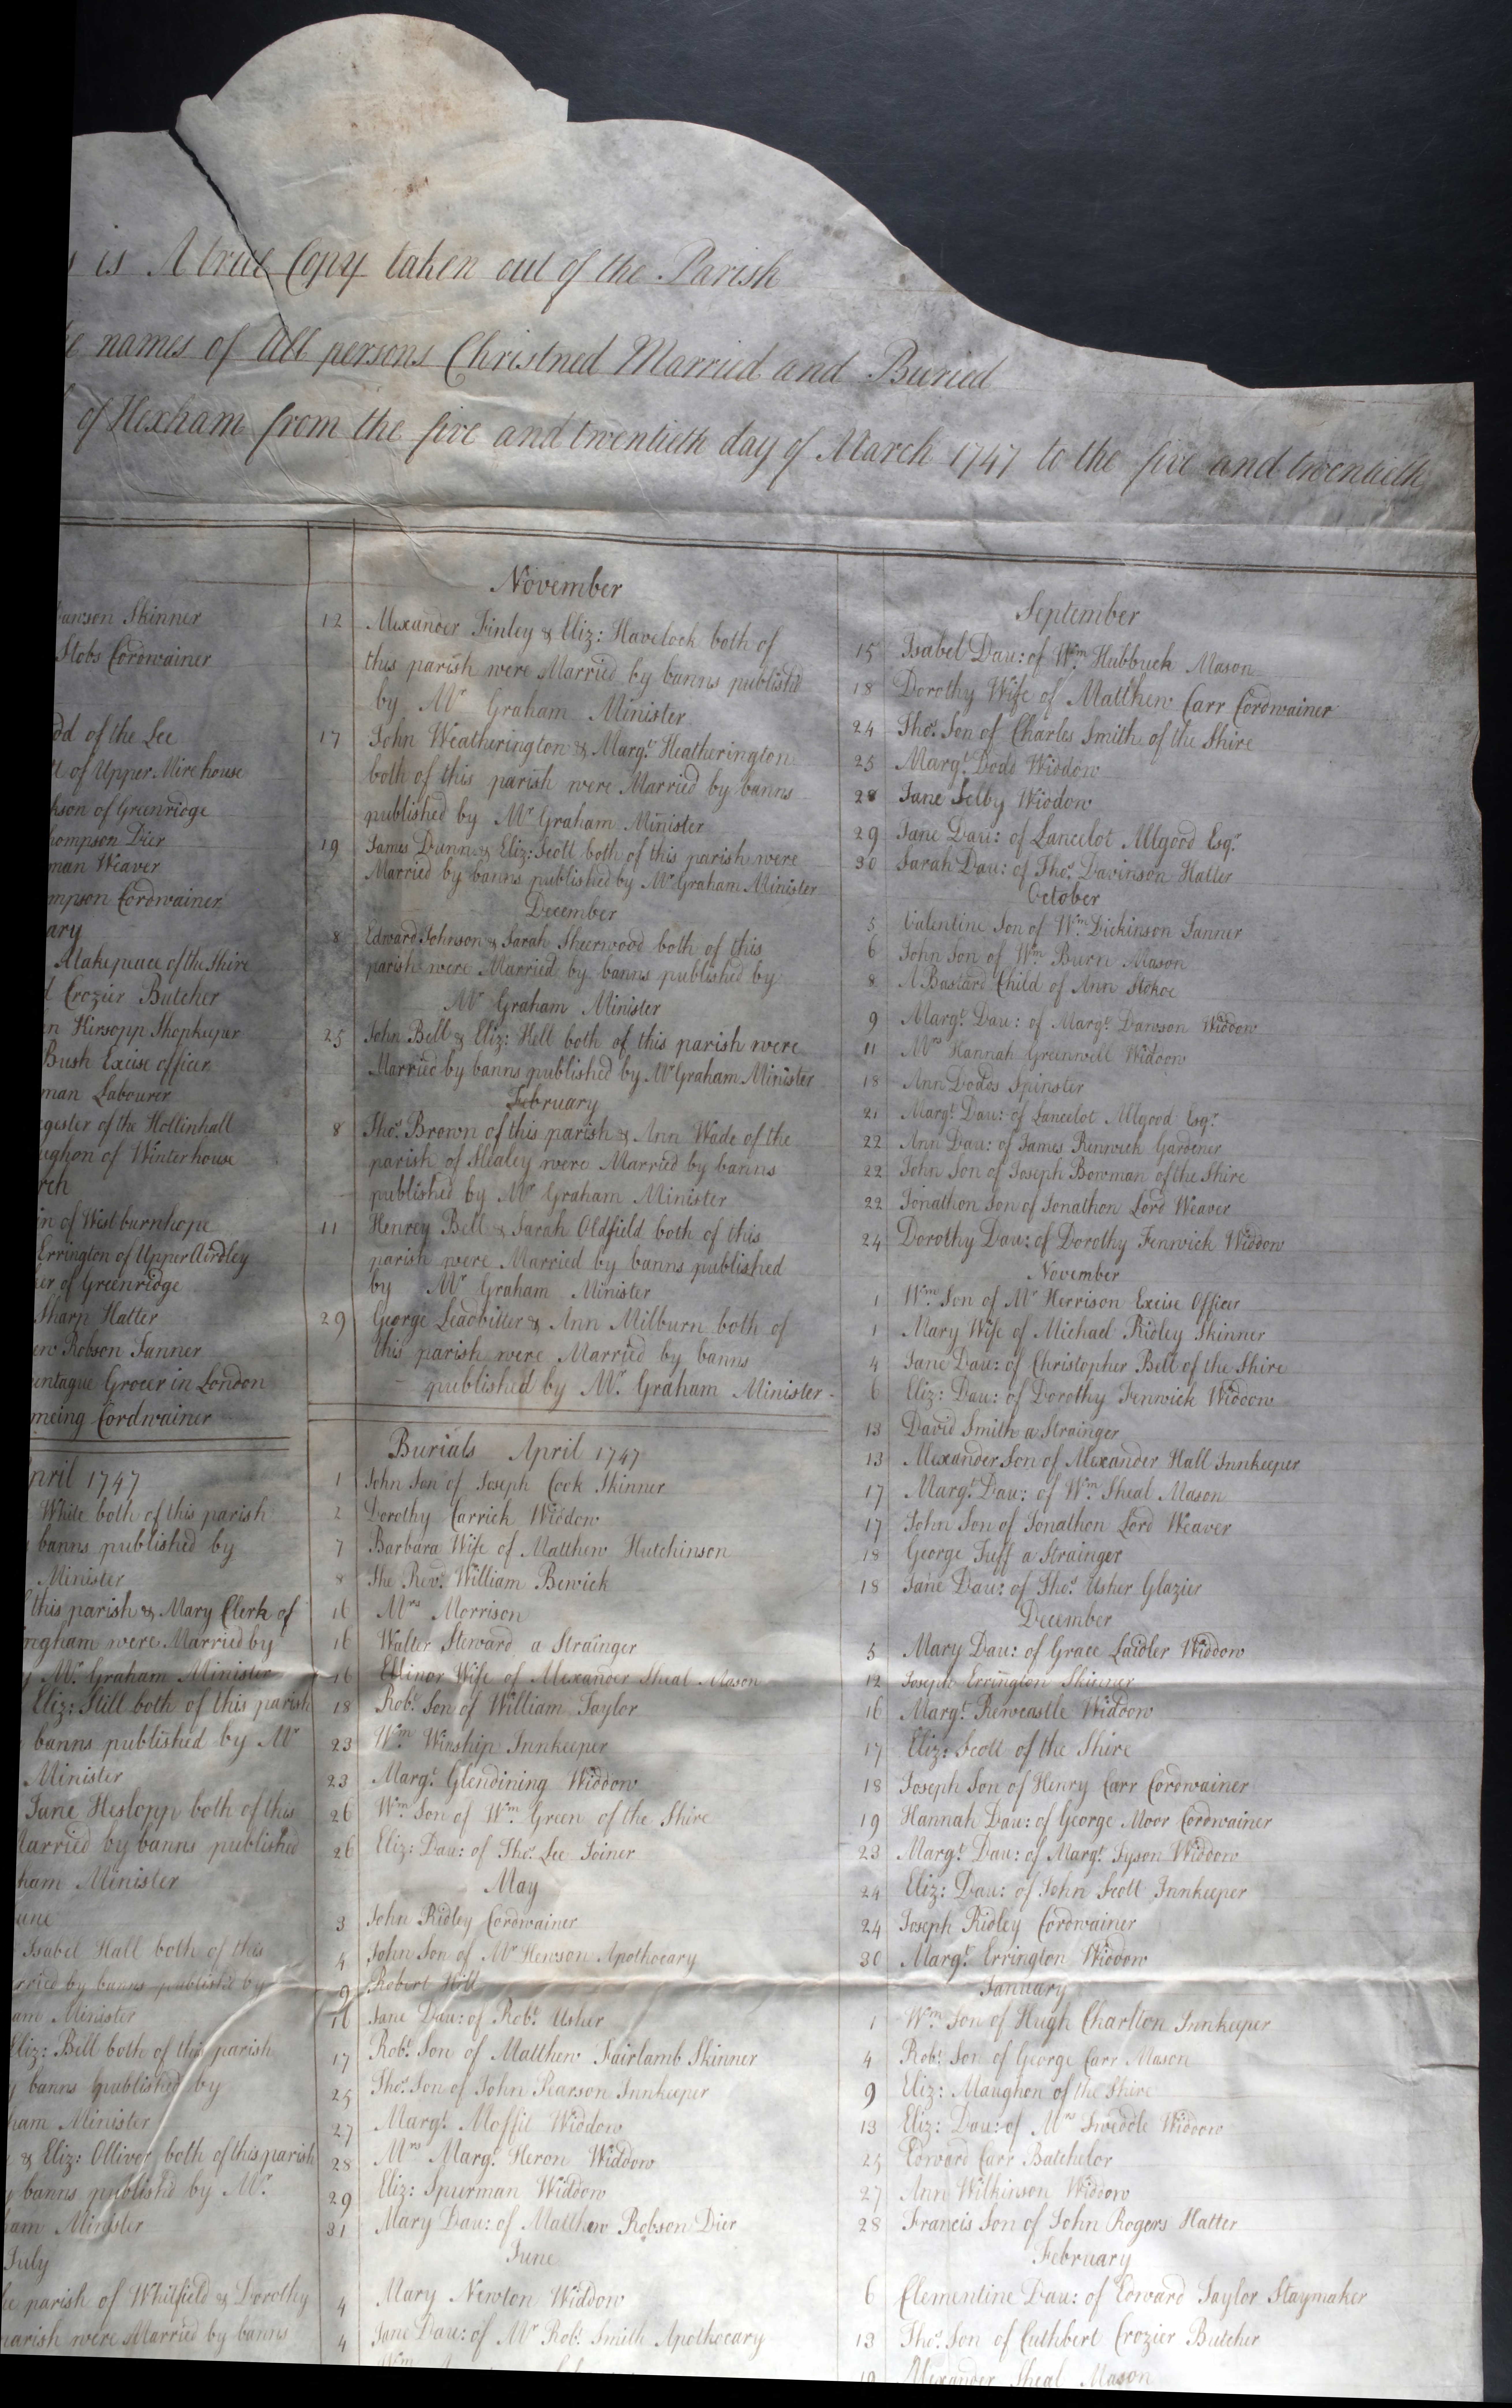 is A true Copy taken out of the Parish
names of All persons Christned Married and Buried
of Hexham from the five and twentieth day of March 1747 to the five and twentieth
Skinner
Stobs Cordwainer
of the Lee
of Upper Mire house
of Greenridge
Dier
Weaver
Cordwainer
Makepeace of the Shire
Crozier Butcher
Hirsopp Shopkeeper
Bush Excise officer
Labourer
of the Hollinhall
of Winterhouse
of Westburnhope
Errington of Upper Airdley
of Greenridge
Sharp Hatter
Robson Tanner
Grocer in London
Cordwainer
April 1747
White both of this parish
banns published by
Minister
this parish & Mary Clerk of
were Married by
Mr. Graham Minister
Eliz: Still both of this parish
banns published by Mr
Minister
Jane Heslopp both of this
Married by banns published
Minister
Isabel Hall both of this
by banns publish'd by
Minister
Eliz: Bell both of this parish
banns published by
Minister
& Eliz: Olliver both of this parish
banns publish'd by Mr.
Minister
July
parish of Whitfield & Dorothy
parish were Married by banns
November
12 Alexander Finley & Eliz: Havelock both of
this parish were Married by banns publish'd
by Mr Graham Minister
17 John Weatherington & Margt. Heatherington
both of this parish were Married by banns
published by Mr Graham Minister
19 James Dunn & Eliz: Scott both of this parish were
Married by banns published by Mr Graham Minister
December
8 Edward Johnson & Sarah Sheerwood both of this
parish were Married by banns published by
Mr Graham Minister
25 John Bell & Eliz: Hell both of this parish were
Married by banns published by Mr Graham Minister
February
8 Thos. Brown of this parish & Ann Wade of the
parish of Slealey were Married by banns
published by Mr Graham Minister
11 Henrey Bell & Sarah Oldfield both of this
parish were Married by banns published
by Mr Graham Minister
29 George Leadbitter & Ann Milburn both of
this parish were Married by banns
published by Mr. Graham Minister
Burials April 1747
1 John Son of Joseph Cook Skinner
2 Dorothy Carrick Widdow
7 Barbara Wife of Matthew Hutchinson
8 The Revd. William Bewick
16 Mrs Morrison
16 Walter Steward a Strainger
16 Ellinor Wife of Alexander Sheal Mason
18 Robt. Son of William Taylor
23 Wm. Winship Innkeeper
23 Margt. Glendining Widdow
26 Wm. Son of Wm. Green of the Shire
26 Eliz: Dau: of Thos. Lee Joiner
May
3 John Ridley Cordwainer
4 John Son of Mr Hewson Apothocary
9 Robert Hill
16 Jane Dau: of Robt. Usher
17 Robt. Son of Matthew Fairlamb Skinner
25 Thos. Son of John Pearson Innkeeper
27 Margt. Moffit Widdow
28 Mrs Margt. Heron Widdow
29 Eliz: Spurman Widdow
31 Mary Dau: of Matthew Robson Dier
June
4 Mary Newton Widdow
4 Jane Dau: of Mr Robt. Smith Apothocary
September
15 Isabel Dau: of Wm. Hubbuck Mason
18 Dorothy Wife of Matthew Carr Cordwainer
24 Thos. Son of Charles Smith of the Shire
25 Margt. Dodd Widdow
28 Jane Selby Widdow
29 Jane Dau: of Lancelot Allgood Esqr.
30 Sarah Dau: of Thos. Davinson Hatter
October
5 Valentine Son of Wm. Dickinson Tanner
6 John Son of Wm Burn Mason
8 A Bastard Child of Ann Stokoe
9 Margt. Dau: of Margt. Dawson Widdow
11 Mrs Hannah Greenwell Widdow
18 Ann Dodds Spinster
21 Margt. Dau: of Lancelot Allgood Esqr.
22 Ann Dau: of James Renwick Gardener
22 John Son of Joseph Bowman of the Shire
22 Jonathon Son of Jonathon Lord Weaver
24 Dorothy Dau: of Dorothy Fenwick Widdow
November
1 Wm. Son of Mr Herrison Excise Officer
1 Mary Wife of Michael Ridley Skinner
4 Jane Dau: of Christopher Bell of the Shire
6 Eliz: Dau: of Dorothy Fenwick Widdow
13 David Smith a Strainger
13 Alexander Son of Alexander Hall Innkeeper
17 Margt. Dau: of Wm. Sheal Mason
17 John Son of Jonathon Lord Weaver
18 George Tuff a Strainger
18 Jane Dau: of Thos. Usher Glazier
December
5 Mary Dau: of Grace Laidler Widdow
12 Joseph Errington Skinner
16 Margt. Rewcastle Widdow
17 Eliz: Scott of the Shire
18 Joseph Son of Henry Carr Cordwainer
19 Hannah Dau: of George Moor Cordwainer
23 Margt. Dau: of Margt. Tyson Widdow
24 Eliz: Dau: of John Scott Innkeeper
24 Joseph Ridley Cordwainer
30 Margt. Errington Widdow
January
1 Wm. Son of Hugh Charlton Innkeeper
4 Robt. Son of George Carr Mason
9 Eliz: Maughon of the Shire
13 Eliz: Dau: of Mrs Tweddle Widdow
25 Edward Carr Batchelor
27 Ann Wilkinson Widdow
28 Francis Son of John Rogers Hatter
February
6 Clementine Dau: of Edward Taylor Staymaker
13 Thos. Son of Cuthbert Crozier Butcher
19 Alexander Sheal Mason